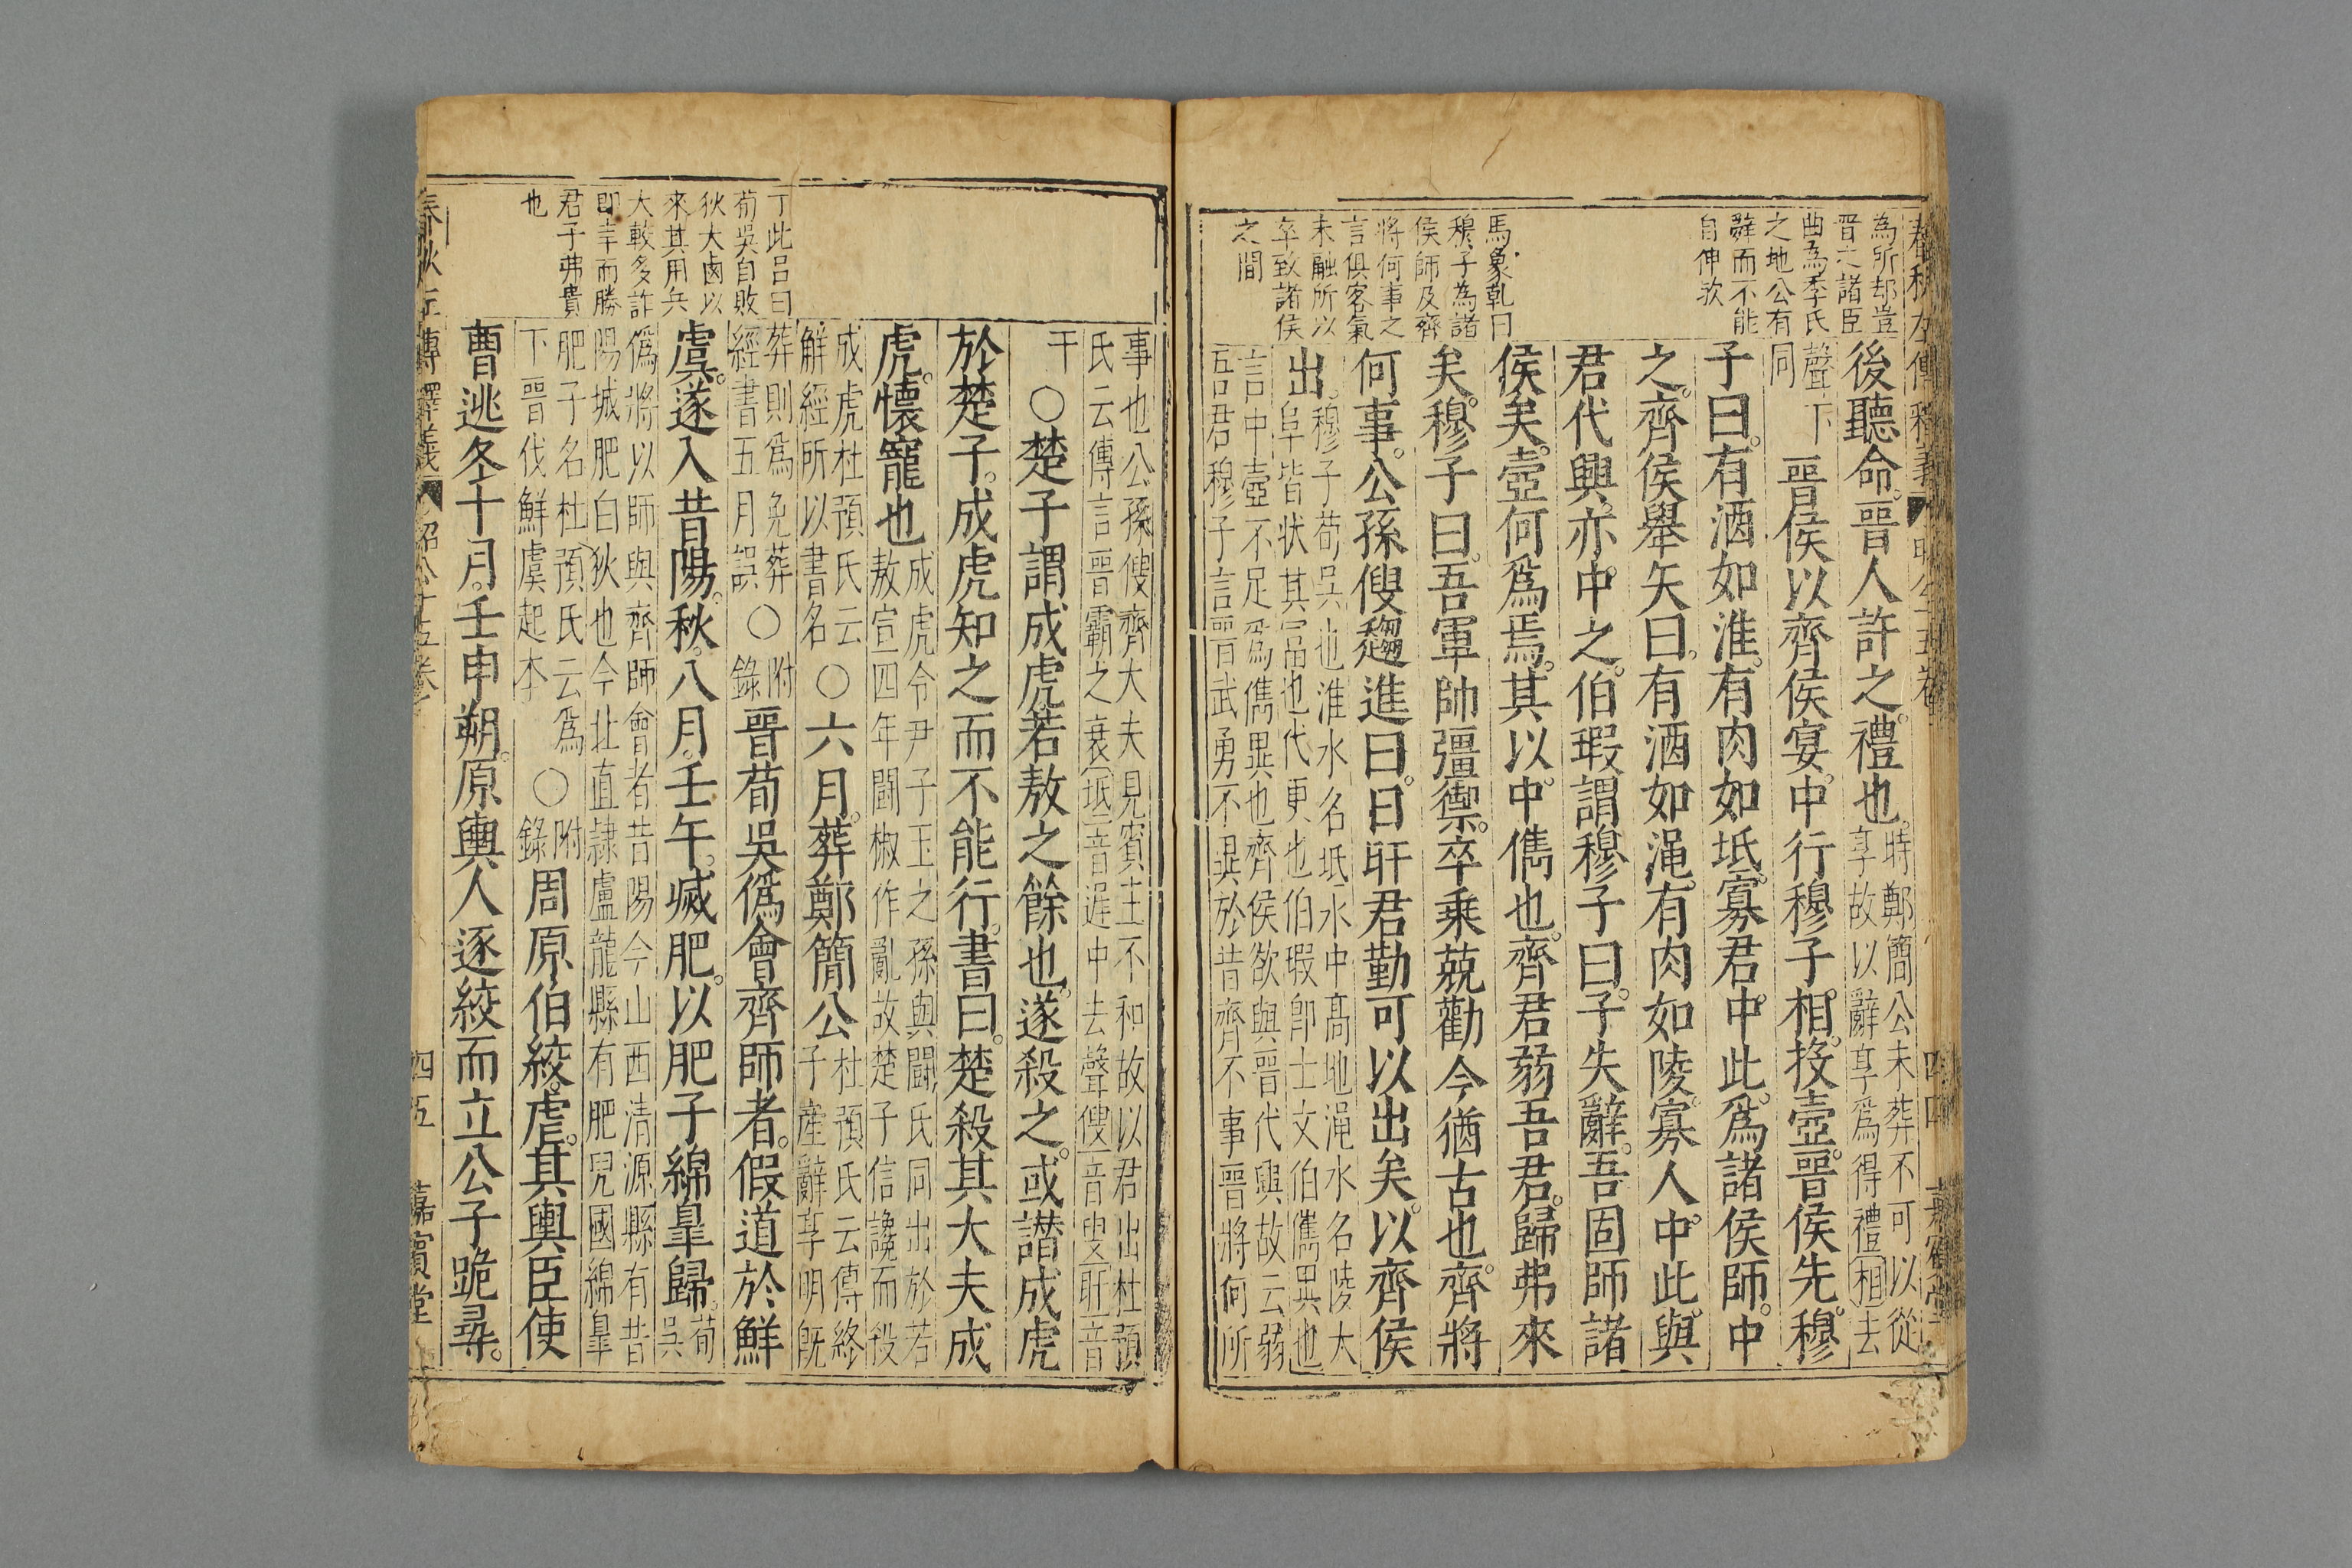 為所却豈
晉之諸臣
曲為季氏
之地公有
辭而不能
自伸歟
馬象乾曰
穆子為諸
侯師及齊
將何事之
言俱客氣
未融所以
卒致諸侯
之間
後聽命。晉人許之。禮也。時鄭簡公未葬不可以從享故以辭享為得禮相去
聲下同晉侯以齊侯宴。中行穆子相。投壺。晉侯先。穆
子曰。有酒如淮。有肉如坻。寡君中此。為諸侯師。中
之。齊侯舉矢曰。有酒如澠。有肉如陵。寡人中此。與
君代興。亦中之。伯瑕謂穆子曰。子失辭。吾固師諸
侯矣。壺何為焉。其以中儁也。齊君弱吾君。歸弗來
矣。穆子曰。吾軍帥彊禦。卒乘競勸今猶古也。齊將
何事。公孫傁趨進曰。日旰君勤可以出矣。以齊侯
出。穆子荀吳也淮水名坻水中高地澠水名陵大阜皆狀其富也代更也伯瑕即士文伯儁異也
言中壺不足為儁異也齊侯欲與晉代興故云弱吾君穆子言晉武勇不異於昔齊不事晉將何所
丁此呂曰
荀吳自敗
狄大鹵以
來其用兵
大較多詐
即幸而勝
君子弗貴
也
事也公孫傁齊大夫見賓主不和故以君出杜預氏云傳言晉霸之衰坻音遲中去聲傁音叟旰音
干○楚子謂成虎若敖之餘也。遂殺之。或譖成虎
於楚子。成虎知之而不能行。書曰。楚殺其大夫成
虎。懷寵也成虎令尹子玉之孫與鬭氏同出於若敖宣四年鬭椒作亂故楚子信讒而殺
成虎杜預氏云解經所以書名○六月。葬鄭簡公杜預氏云傳終子產辭享明既
葬則為免葬經書五月誤○附錄晉荀吳偽會齊師者。假道於鮮
虞。遂入昔陽。秋。八月。壬午。滅肥。以肥子綿皐歸。荀吳
偽將以師與齊師會者昔陽今山西清源縣有昔陽城肥白狄也今北直隸盧龍縣有肥兒國綿皐
肥子名杜預氏云為下晉伐鮮虞起本○附錄周原伯絞。虐。其輿臣使
曹逃冬十月。壬申朔。原輿人逐絞而立公子跪尋。
四五
嘉賓堂